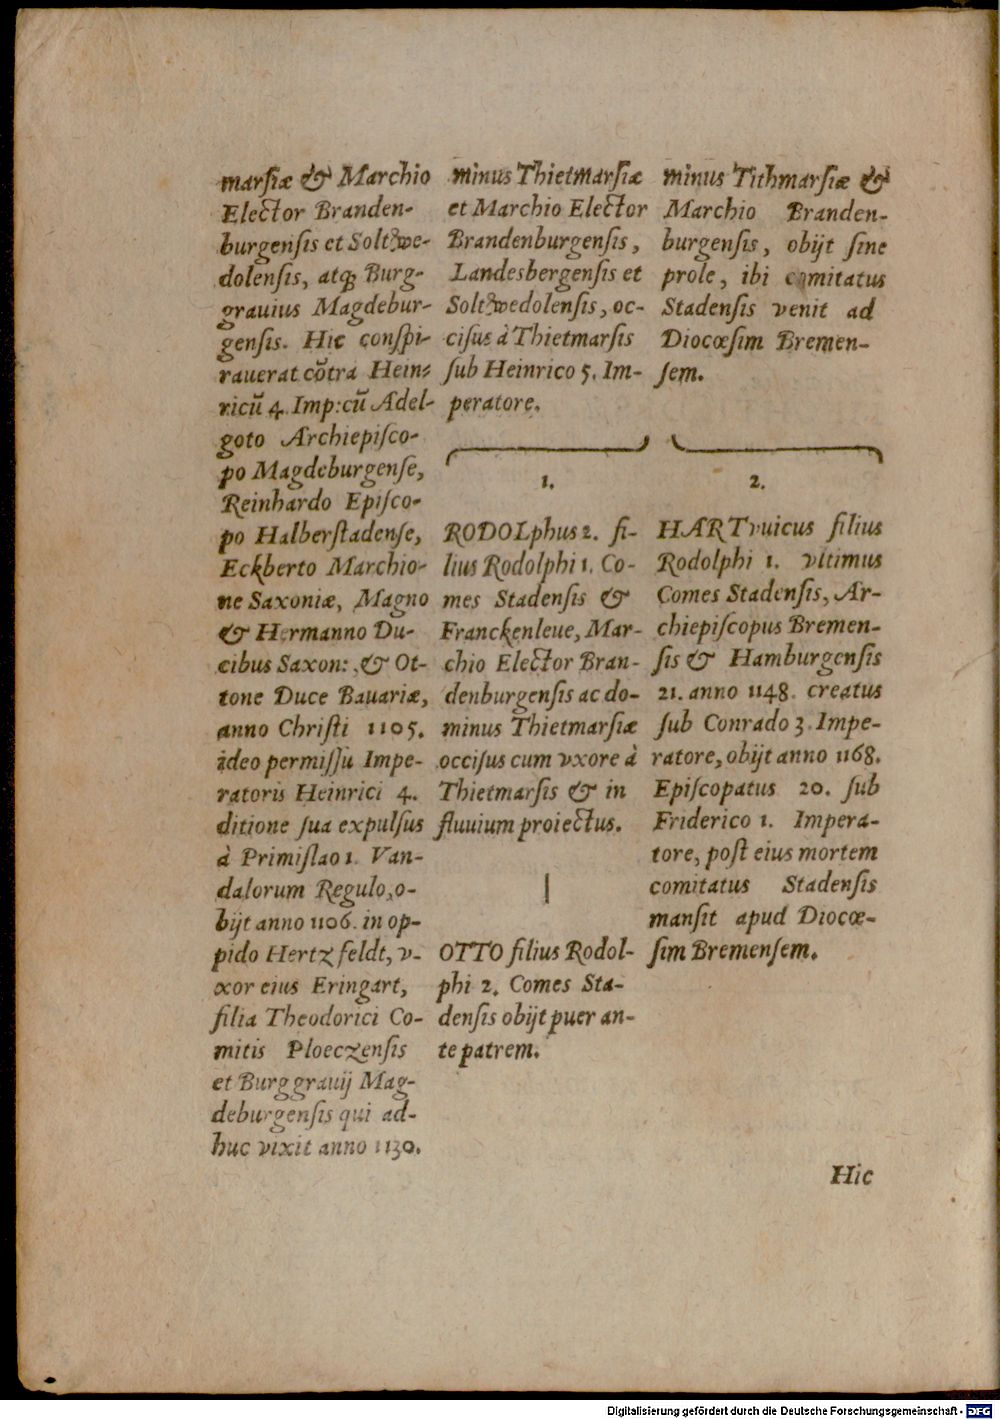 marsiæ & Marchio
Elector Branden-
burgensis et Soltzwe-
dolensis, atq; Burg-
grauius Magdebur-
gensis. Hic conspi-
rauerat cõtra Hein-
ricũ 4. Imp: cũ Adel-
goto Archiepisco-
po Magdeburgense,
Reinhardo Episco-
po Halberstadense,
Eckberto Marchio-
ne Saxoniæ, Magno
& Hermanno Du-
cibus Saxon: & Ot-
tone Duce Bauariæ,
anno Christi 1105.
ideo permissu Impe-
ratoris Heinrici 4.
ditione sua expulsus
à Primislao 1. Van-
dalorum Regulo, o-
bijt anno 1106. in op-
pido Hertzfeldt, v-
xor eius Eringart,
filia Theodorici Co-
mitis Ploeczensis
et Burggrauij Mag-
deburgensis qui ad-
huc vixit anno 1130.
minus Thietmarsiæ
et Marchio Elector
Brandenburgensis,
Landesbergensis et
Soltzwedolensis, oc-
cisus à Thietmarsis
sub Heinrico 5. Im-
peratore.
1.
RODOLphus 2. fi-
lius Rodolphi 1. Co-
mes Stadensis &
Franckenleue, Mar-
chio Elector Bran-
denburgensis ac do-
minus Thietmarsiæ
occisus cum vxore à
Thietmarsis & in
fluuium proiectus.
OTTO filius Rodol-
phi 2. Comes Sta-
densis obijt puer an-
te patrem.
minus Tithmarsiæ &
Marchio Branden-
burgensis, obijt sine
prole, ibi comitatus
Stadensis venit ad
Diocœsim Bremen-
sem.
2.
HARTvuicus filius
Rodolphi 1. vltimus
Comes Stadensis, Ar-
chiepiscopus Bremen-
sis & Hamburgensis
21. anno 1148. creatus
sub Conrado 3. Impe-
ratore, obijt anno 1168.
Episcopatus 20. sub
Friderico 1. Impera-
tore, post eius mortem
comitatus Stadensis
mansit apud Diocœ-
sim Bremensem.
Hic
Digitalisierung gefördert durch die Deutsche Forschungsgemeinschaft - DFG